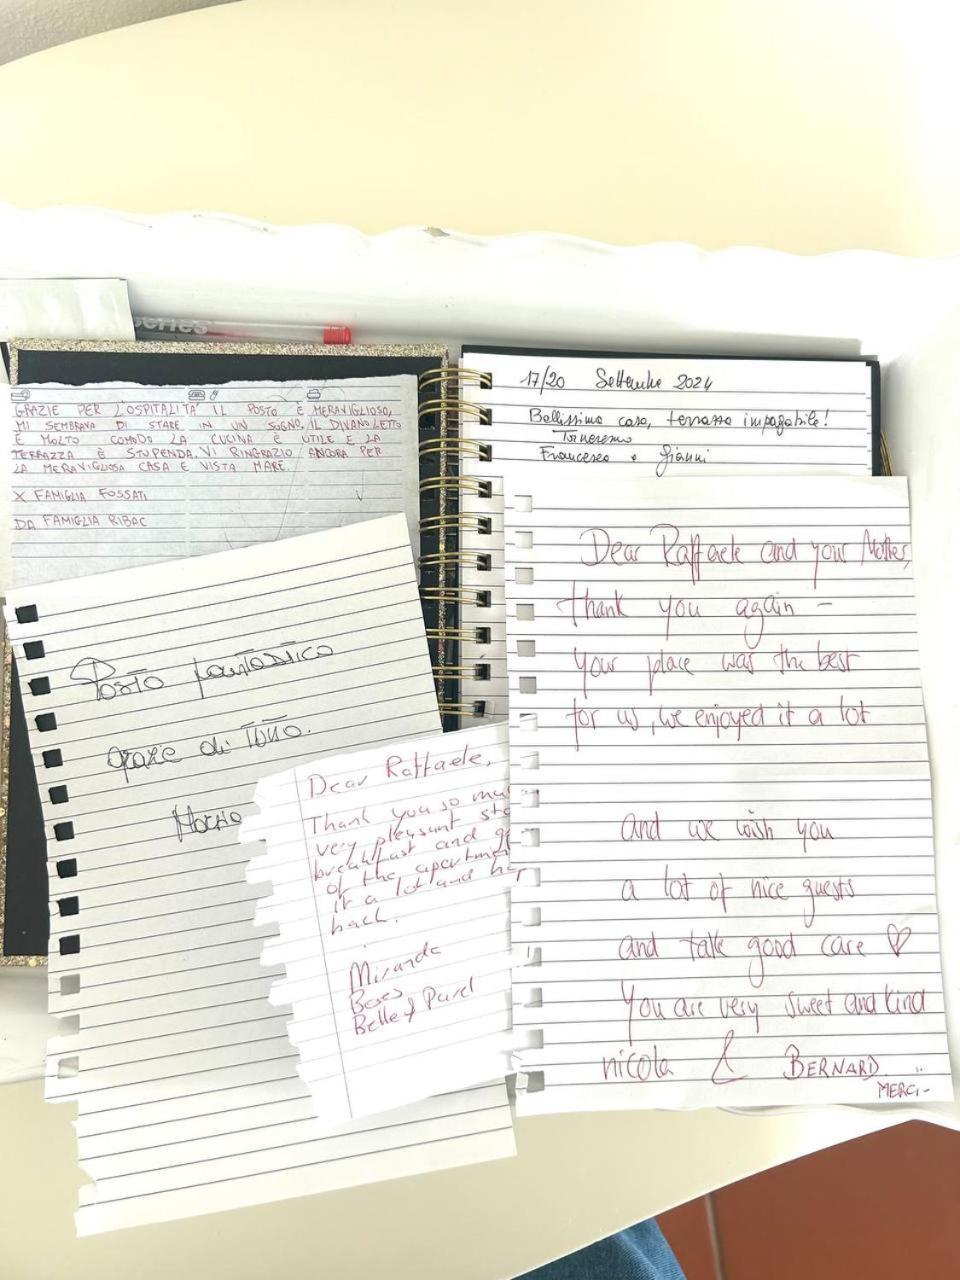 series
GRAZIE PER L'OSPITALITA' IL POSTO È MERAVIGLIOSO,
MI SEMBRAVA DI STARE IN UN SOGNO, IL DIVANO LETTO
È MOLTO COMODO LA CUCINA È UTILE E LA
TERRAZZA È STUPENDA. VI RINGRAZIO ANCORA PER
LA MERAVIGLIOSA CASA E VISTA MARE
X FAMIGLIA FOSSATI
DA FAMIGLIA RIBAC
17/20 Settembre 2024
Bellissima casa, terrazza impagabile!
Torneremo
Francesco e Gianni
Posto fantastico
grazie di tutto.
Dear Raffaele,
Thank you so mu
very pleasunt sta
breakfast and
of the apartme
it a lot and
back.
Miranda
Belle & Pavel
Dear Raffaele and your Mother,
thank you again -
your place was the best
for us, we enjoyed it a lot
and we wish you
a lot of nice guests
and take good care ♡
You are very sweet and kind
nicola & BERNARD
MERCI-